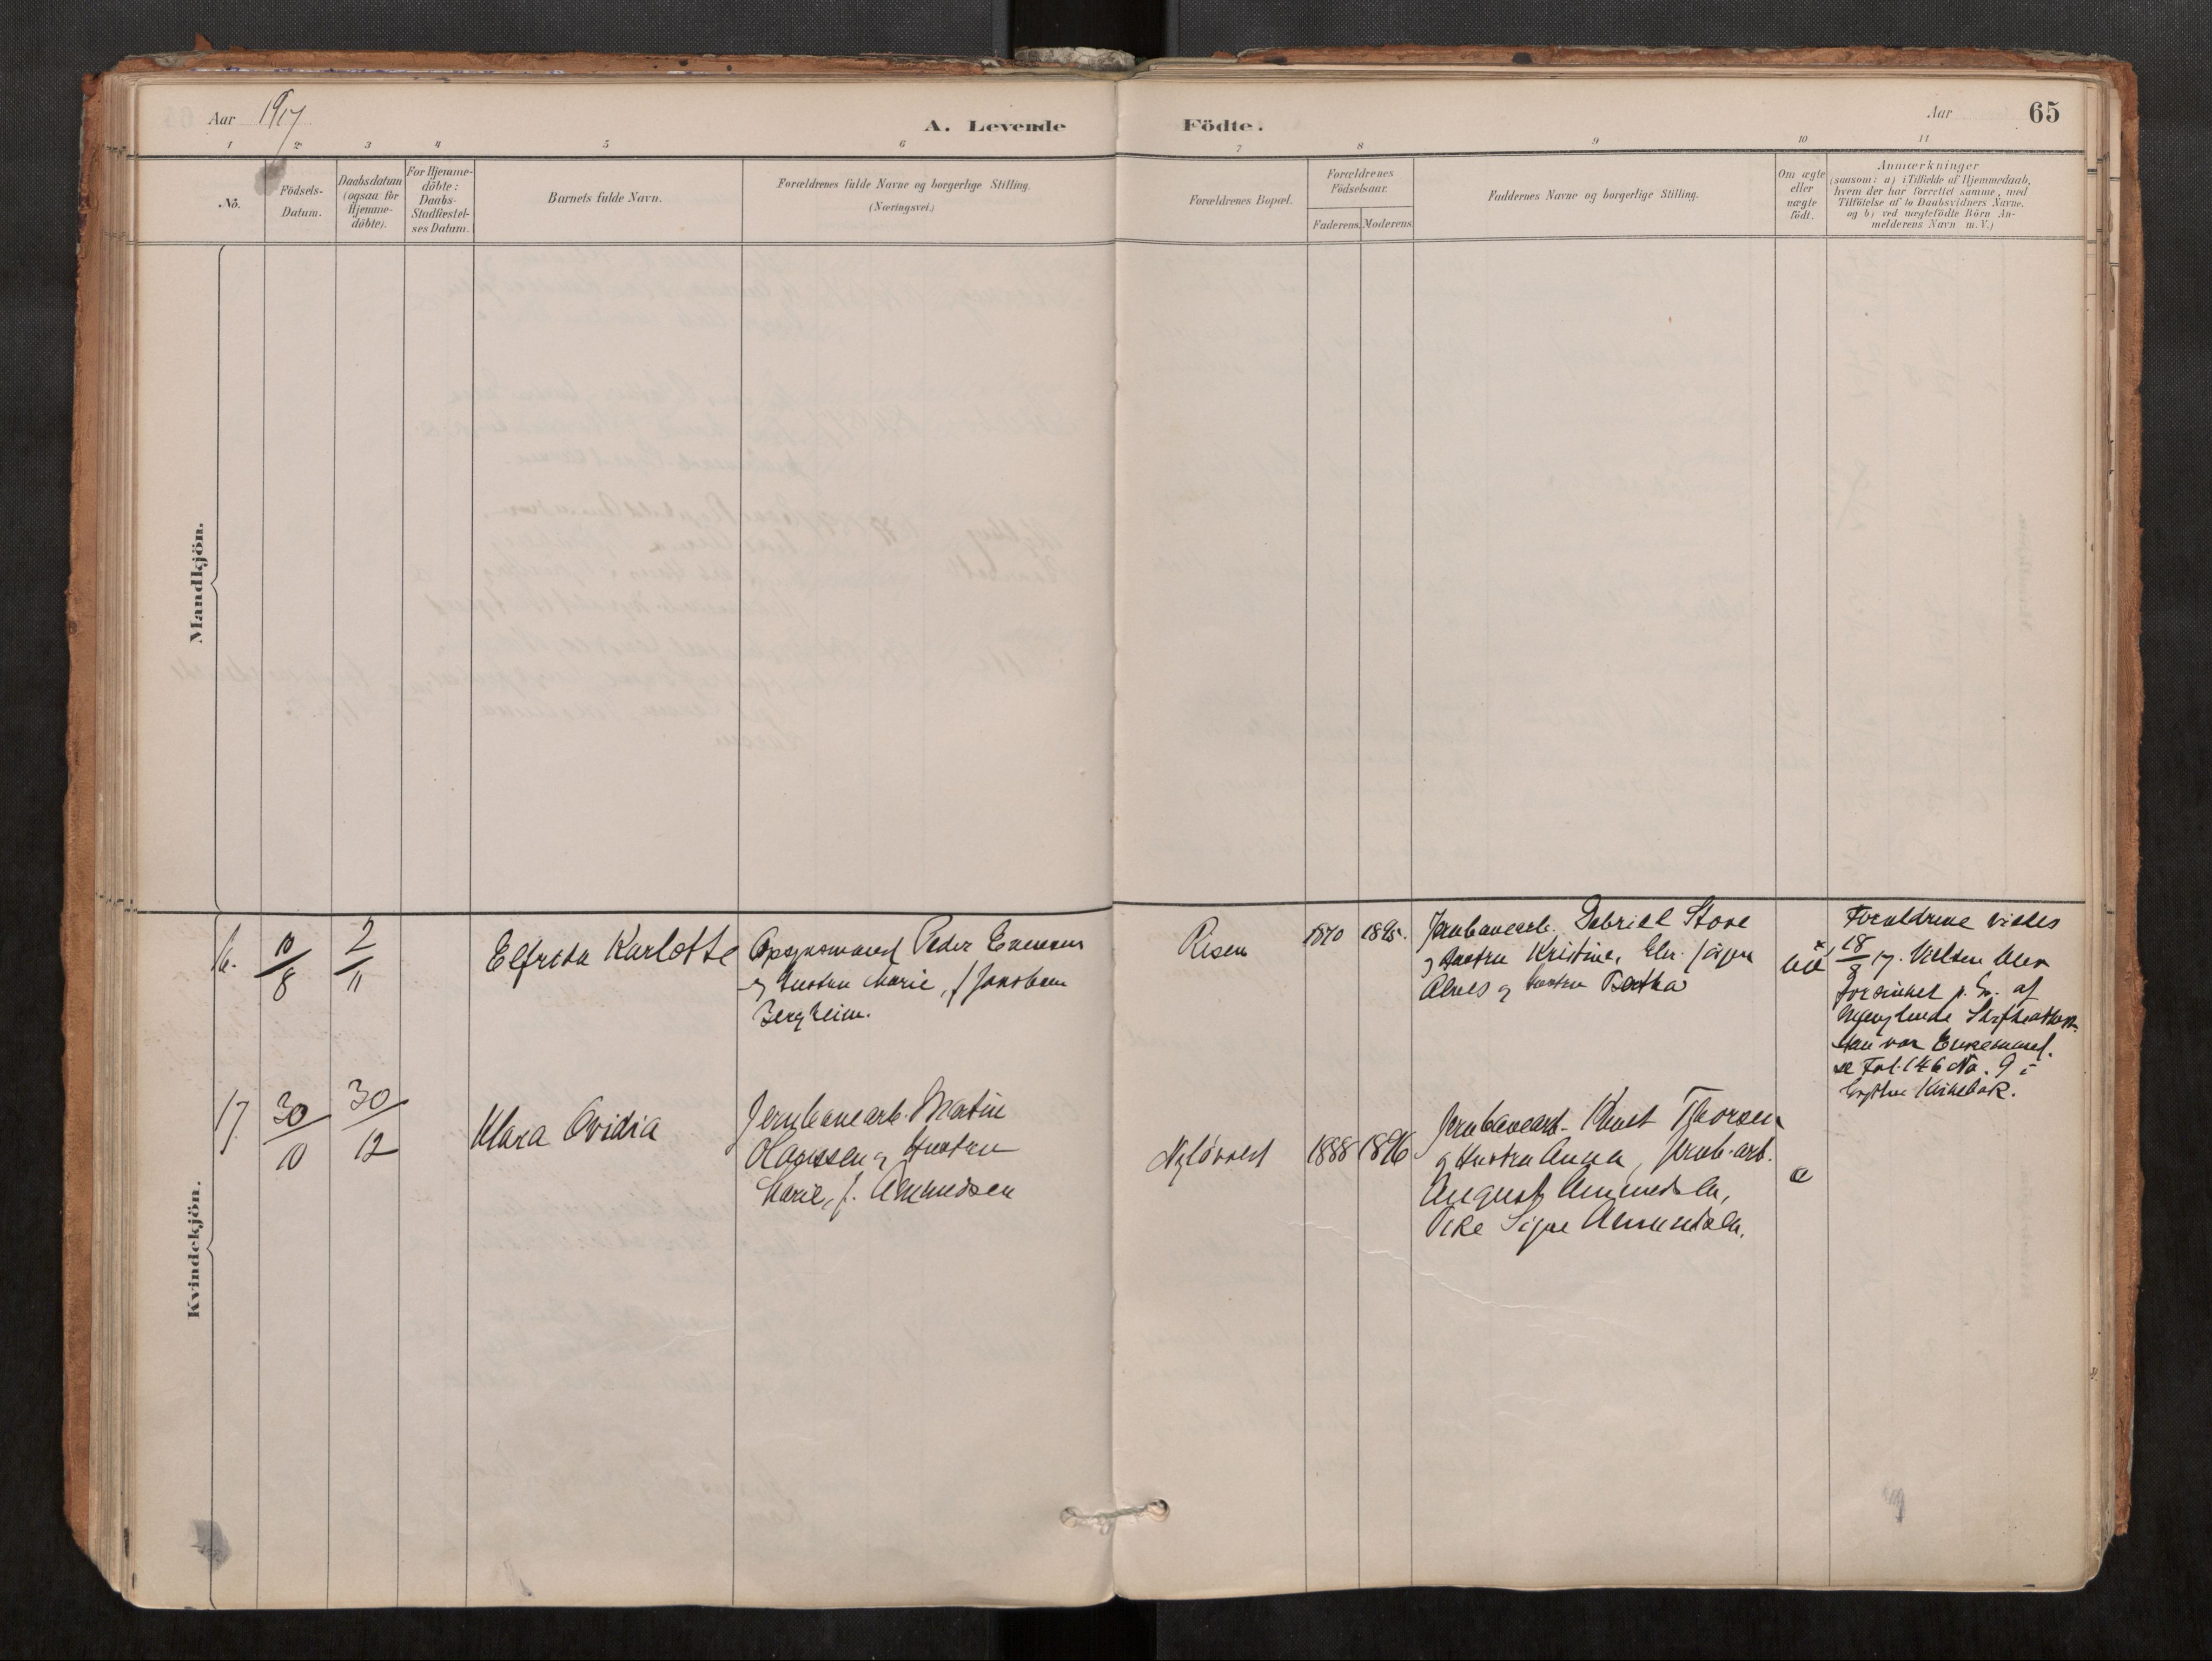 Aar 1917
A. Levende Födte.
Aar
65
1 2 3 4 5 6 7 8 9 10 11
No.
Födsels-
Datum.
Daabsdatum
(ogsaa for
Hjemme-
döbte).
For Hjemme-
döbte:
Daabs-
Stadfæstel-
ses Datum.
Barnets fulde Navn.
Forældrenes fulde Navne og borgerlige Stilling.
(Næringsvei.)
Forældrenes Bopæl.
Forældrenes
Födselsaar.
Faderens. Moderens.
Faddernes Navne og borgerlige Stilling.
Om ægte
eller
uægte
födt.
Anmærkninger
(saasom: a) i Tilfælde af Hjemmedaab,
hvem der har forrettet samme, med
Tilföielse af to Daabsvidners Navne,
og b) ved uægtefödte Börn An-
melderens Navn m. V.)
Mandkjön.
Kvindekjön.
16.
10/8
2/11
Elfreda Karlotte
Opsynsmand Peder
og Hustru Marie, f Jakobsen
Bergheim.
Risen
1870
1895.
Jernbanearb. Gabriel Stove
og Hustru Kristine,
og Hustru Bertha
Forældrene viedes
18/8 17. Vielsen blev
forsinket p. Gr. af
Manglende Skifteattest.
Han var Enkemand.
se Fol. 146 No. 9 i
Kirkebok.
17
30/10
30/12
Klara Ovidia
Jernbanearb. Martin
Olaussen og Hustru
Marie, f. Amundsen
1888
1896
Jernbanearb. Knut Thorsen
og Hustru Anna, Jernb.arb.
August Amundsen,
Pike Signe Amundsen.
æ